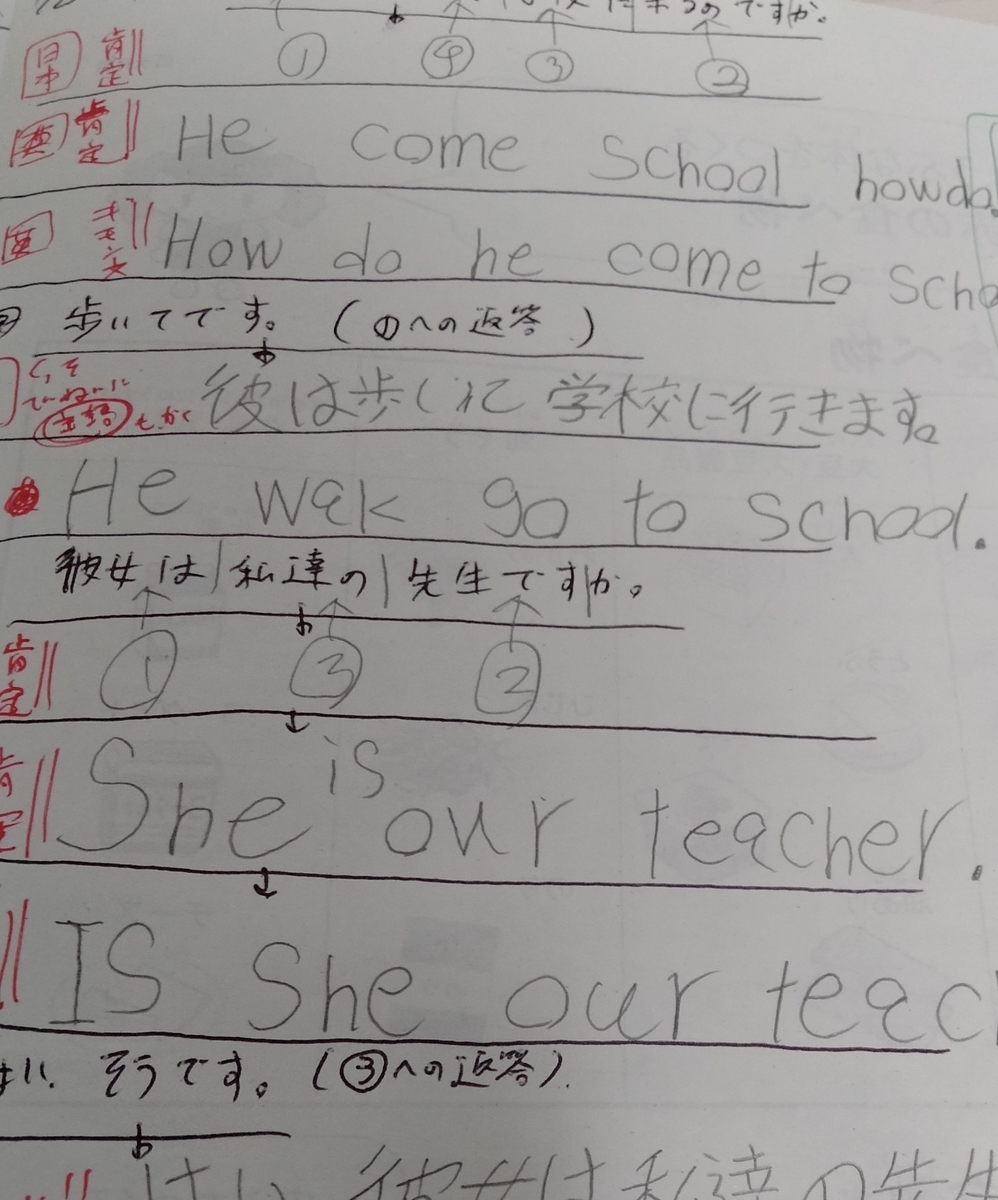 ですか。
① ④ ③ ②
日本 肯定
英 肯定 He come School howdo
英 ギモン文 How do he come to Scho
歩いてです。(①への返答)
くっそ ていねいに 主語 もかく
彼は歩くれて 学校に行きます。
He wak go to School.
彼女は|私達の|先生ですか。
肯定 ① ③ ②
肯定 She is our teacher.
IS She our teac
はい、そうです。(③への返答)
はい 彼女は私達の先生